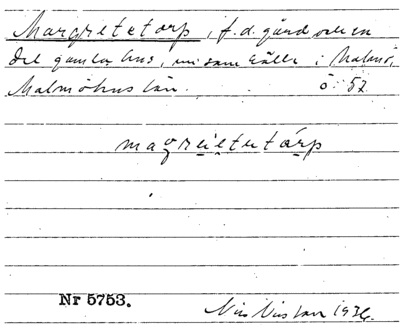 Margretetorp, f.d. gård och en
del gamla hus, nu samhälle i Malmö,
Malmöhus län. ö. 52
magrèitetårp
Nr 5753.
Nils Nilsson 1936.